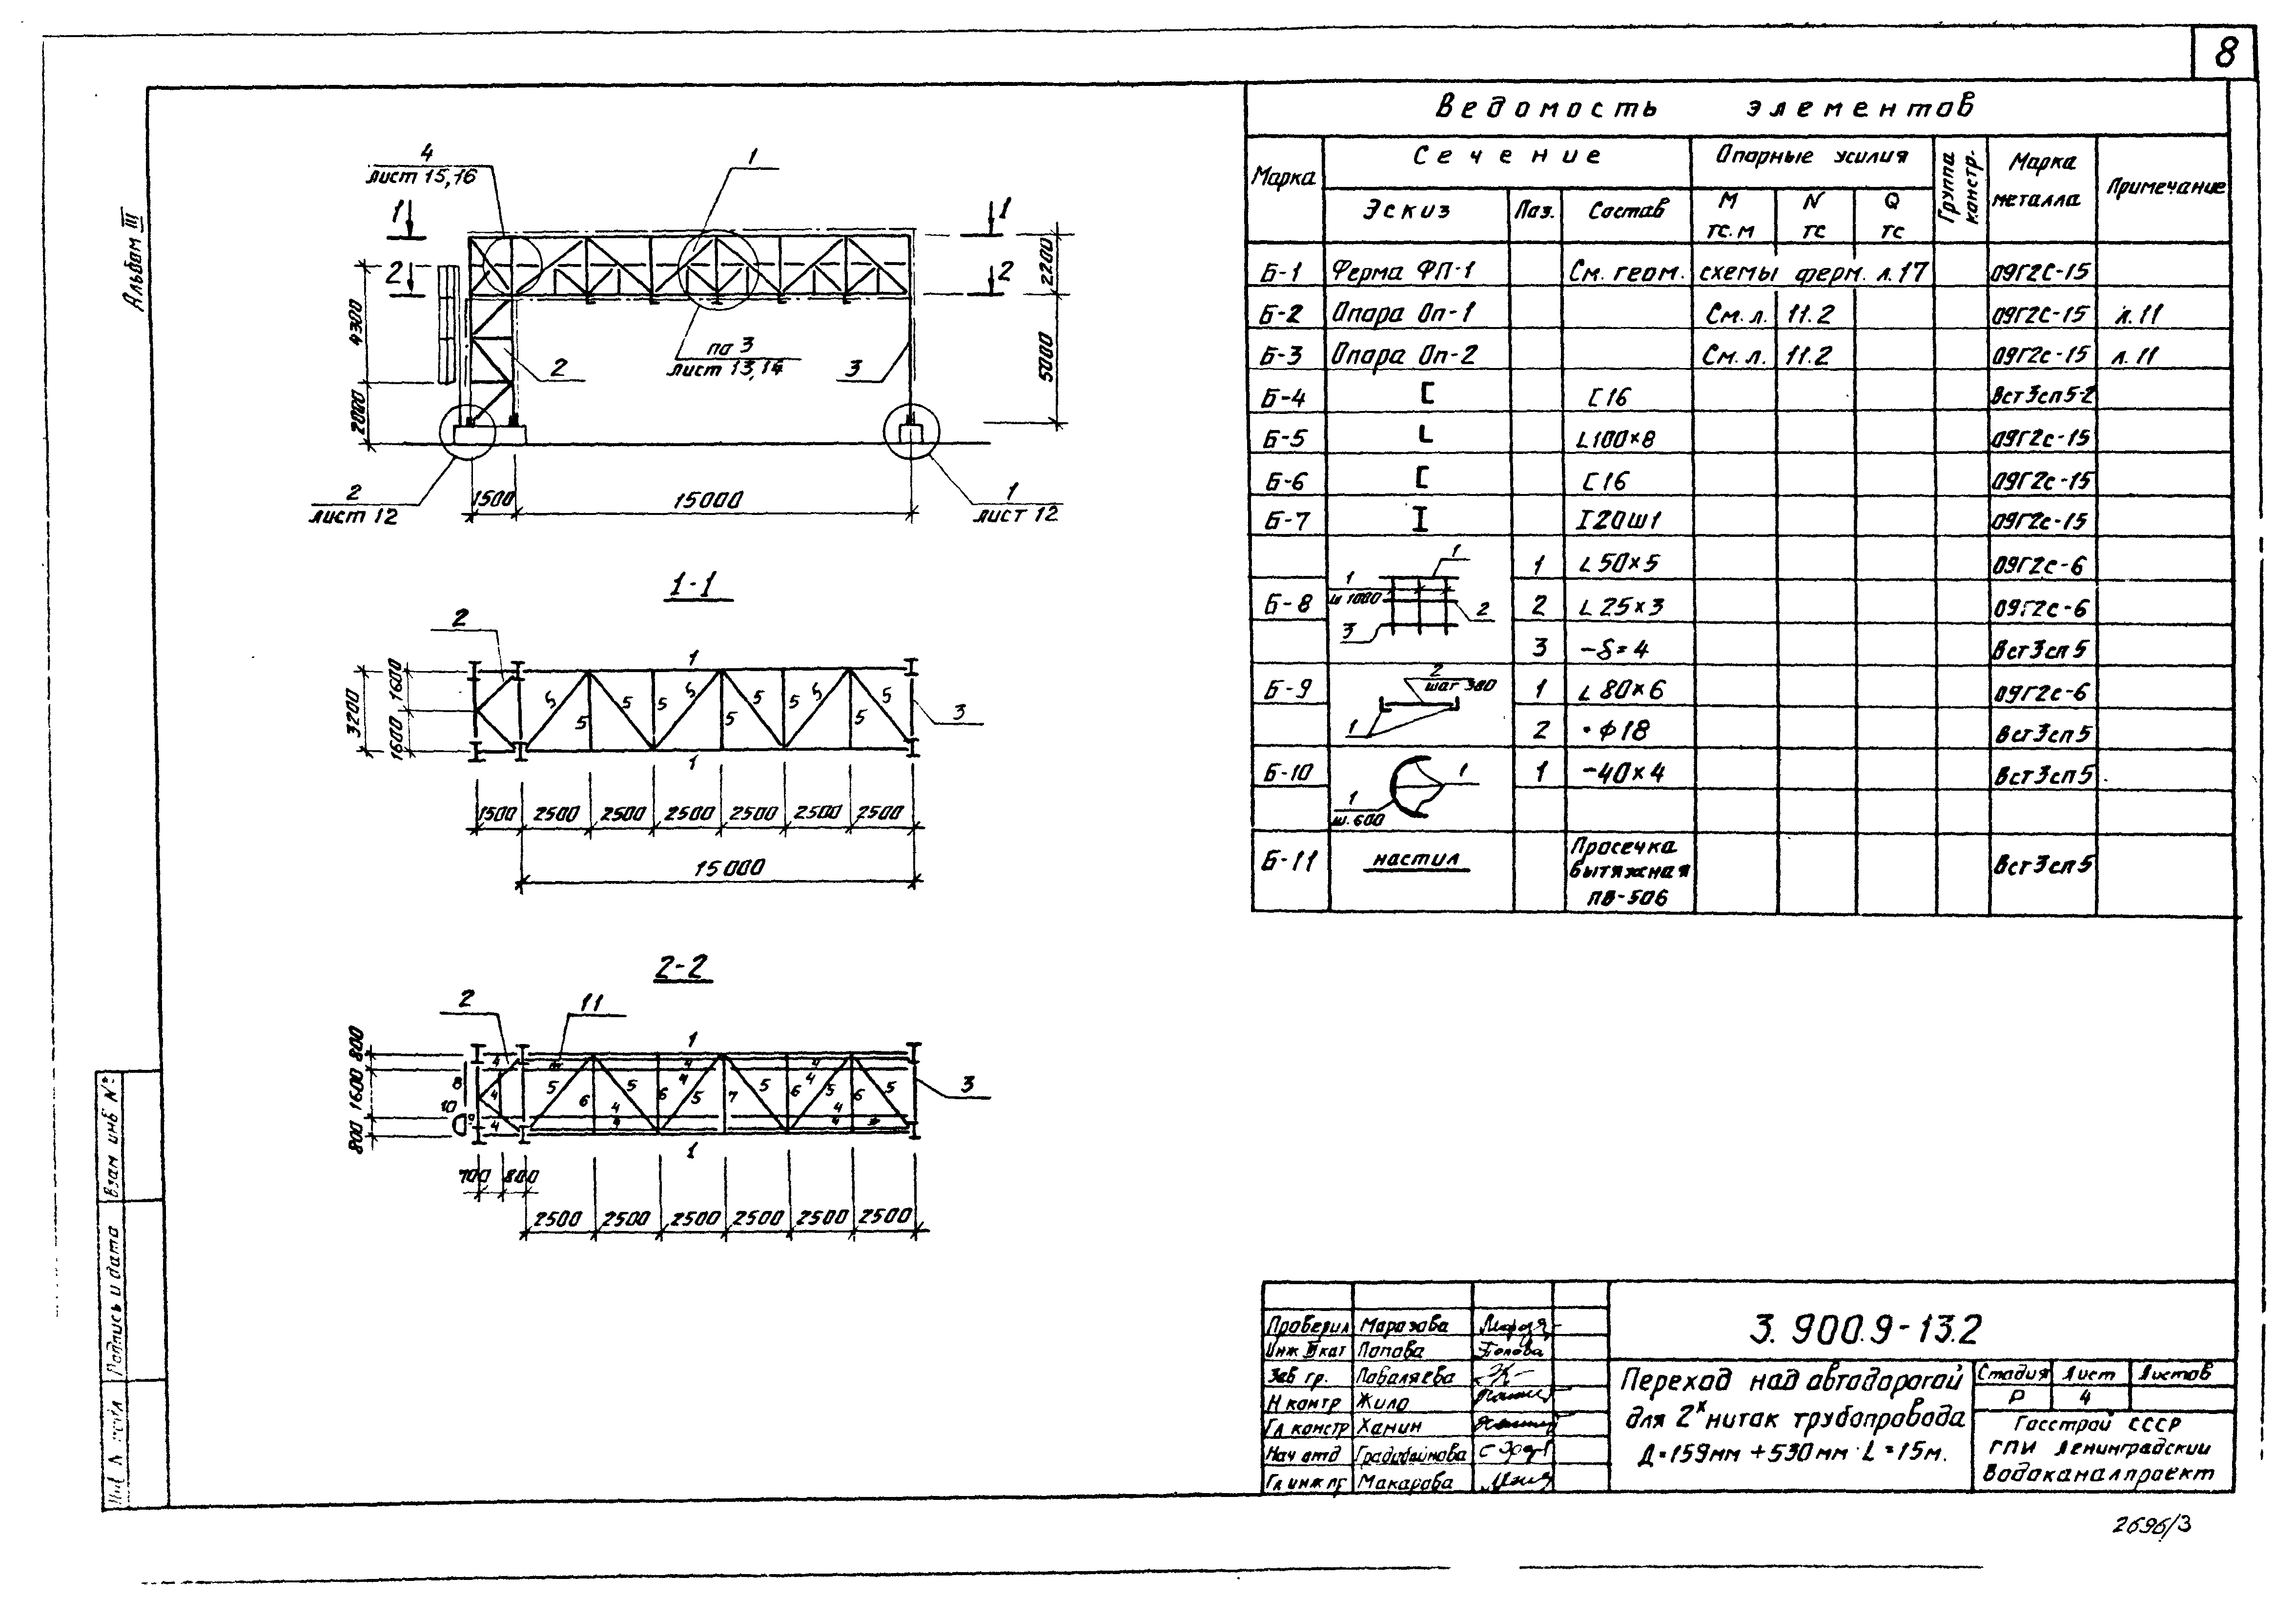 8
Альбом III
4
лист 15,16
1
1
1
2
2
2200
5000
4300
2000
2
3
по 3
лист 13,14
2
лист 12
1500
15000
1
лист 12
1-1
2
1
3200
1600
1600
5 5 5 5 5 5
5 5 5 5 5
3
1
1500 2500 2500 2500 2500 2500 2500
15000
2-2
2
11
1
800
1600
800
8
10
9
4 4 4
5 5 5 5 5 5
6 6 7 6 6
4 4 4 4
4 4 4 4
3
1
700 800
2500 2500 2500 2500 2500 2500
Ведомость элементов
Марка Сечение Опорные усилия Группа констр. Марка металла Примечание
Эскиз Поз. Состав М тс.м N тс Q тс
Б-1 Ферма ФП-1 См. геом. схемы ферм. л.17 09Г2С-15
Б-2 Опора Оп-1 См. л. 11.2 09Г2С-15 л.11
Б-3 Опора Оп-2 См. л. 11.2 09Г2с-15 л.11
Б-4 [ [16 Вст3сп5-2
Б-5 L L100×8 09Г2с-15
Б-6 [ [16 09Г2с-15
Б-7 I I20Ш1 09Г2с-15
1 L50×5 09Г2с-6
Б-8 2 L25×3 09Г2с-6
3 -δ=4 Вст3сп5
1
1
ш 1000
2
3
Б-9 1 L80×6 09Г2с-6
2 •Ф18 Вст3сп5
2
шаг 300
1
Б-10 1 -40×4 Вст3сп5
1
1
ш.600
Б-11 настил Просечка вытяжная ПВ-506 Вст3сп5
Проверил Морозова
Инж III кат Попова Попова
Зав гр. Поваляева
Н контр Жило
Гл констр Ханин
Нач отд
Гл инж пр Макарова
3.900.9-13.2
Переход над автодорогой
для 2х ниток трубопровода
Д=159мм + 530мм L=15м.
Стадия Лист Листов
Р 4
Госстрой СССР
ГПИ Ленинградский
Водоканалпроект
Взам инв №
Подпись и дата
2696/3